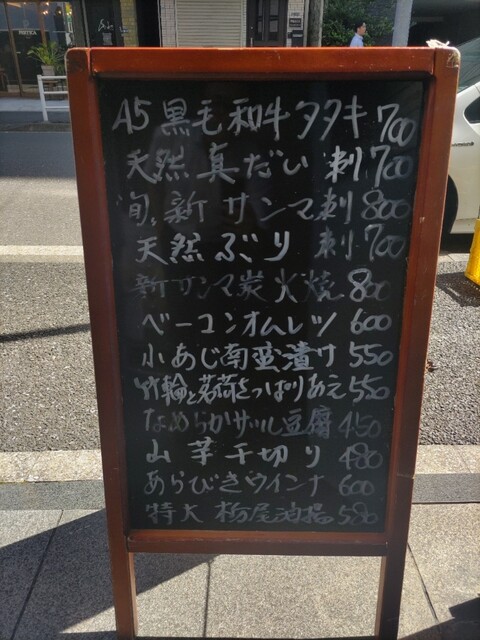 A5 黒毛和牛タタキ 700
天然 真だい 刺 700
旬、新サンマ刺 800
天然ぶり 刺 700
新サンマ炭火焼 800
ベーコンオムレツ 600
小あじ南蛮漬け 550
竹輪と茗荷さっぱりあえ 550
なめらかザル豆腐 450
山芋千切り 480
あらびきウインナ 600
特大 栃尾油揚 580